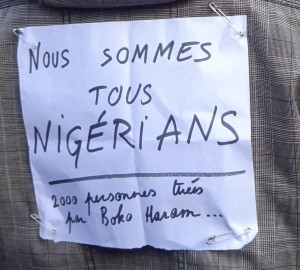 NOUS SOMMES
TOUS
NIGÉRIANS
2000 personnes tuées
par Boko Haram...